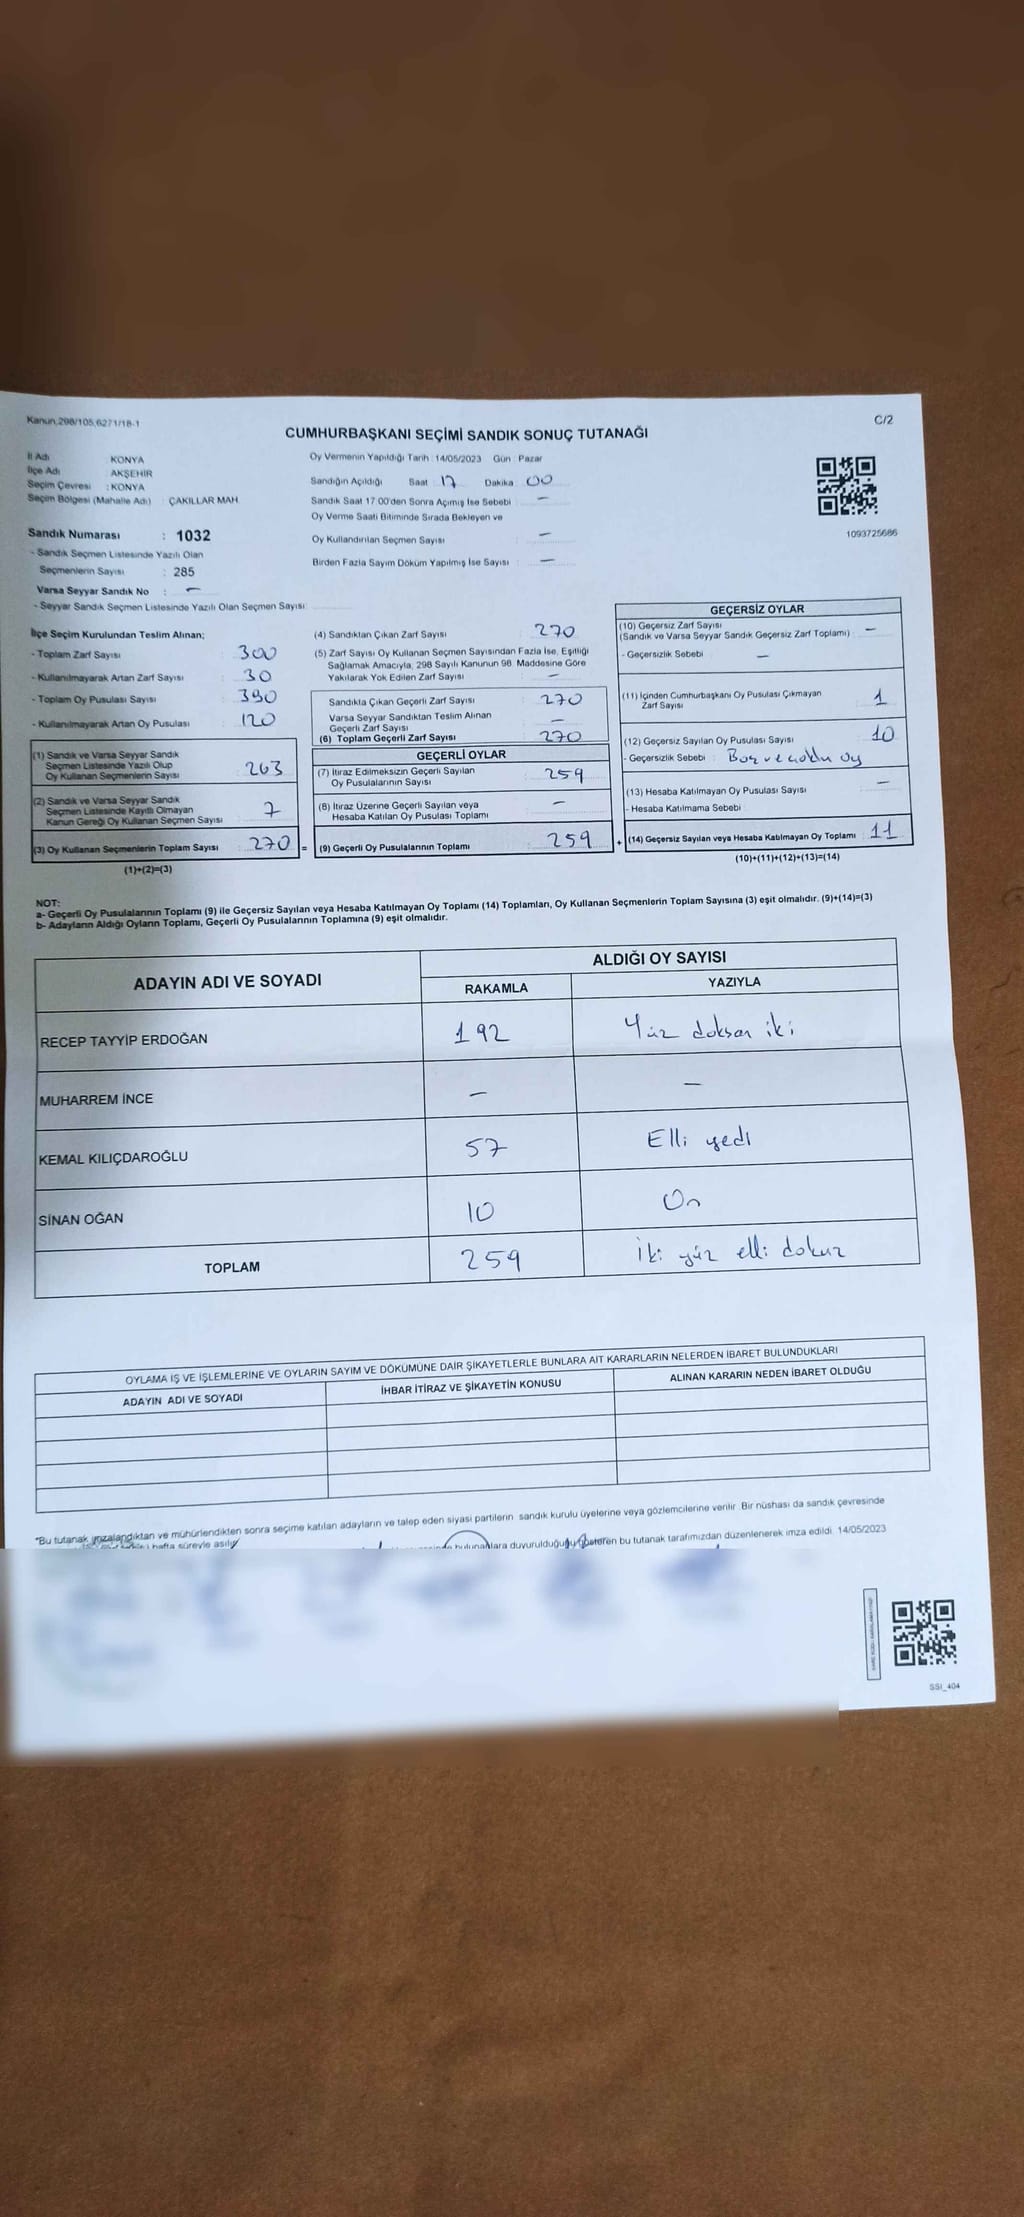 Kanun,298/105,6271/18-1
C/2
CUMHURBAŞKANI SEÇİMİ SANDIK SONUÇ TUTANAĞI
İl Adı : KONYA
İlçe Adı : AKŞEHİR
Seçim Çevresi : KONYA
Seçim Bölgesi (Mahalle Adı) : ÇAKILLAR MAH
Oy Vermenin Yapıldığı Tarih : 14/05/2023 Gün : Pazar
Sandığın Açıldığı Saat : 17 Dakika : 00
Sandık Saat 17.00'den Sonra Açımış İse Sebebi : —
Oy Verme Saati Bitiminde Sırada Bekleyen ve
Oy Kullandırılan Seçmen Sayısı : —
Birden Fazla Sayım Döküm Yapılmış İse Sayısı : —
1093725686
Sandık Numarası : 1032
- Sandık Seçmen Listesinde Yazılı Olan
Seçmenlerin Sayısı : 285
Varsa Seyyar Sandık No : —
- Seyyar Sandık Seçmen Listesinde Yazılı Olan Seçmen Sayısı
İlçe Seçim Kurulundan Teslim Alınan;
- Toplam Zarf Sayısı : 300
- Kullanılmayarak Artan Zarf Sayısı : 30
- Toplam Oy Pusulası Sayısı : 390
- Kullanılmayarak Artan Oy Pusulası : 120
(1) Sandık ve Varsa Seyyar Sandık
Seçmen Listesinde Yazılı Olup
Oy Kullanan Seçmenlerin Sayısı : 263
(2) Sandık ve Varsa Seyyar Sandık
Seçmen Listesinde Kayıtlı Olmayan
Kanun Gereği Oy Kullanan Seçmen Sayısı : 7
(3) Oy Kullanan Seçmenlerin Toplam Sayısı : 270 =
(1)+(2)=(3)
(4) Sandıktan Çıkan Zarf Sayısı : 270
(5) Zarf Sayısı Oy Kullanan Seçmen Sayısından Fazla İse, Eşitliği
Sağlamak Amacıyla, 298 Sayılı Kanunun 98. Maddesine Göre
Yakılarak Yok Edilen Zarf Sayısı : —
Sandıkta Çıkan Geçerli Zarf Sayısı : 270
Varsa Seyyar Sandıktan Teslim Alınan
Geçerli Zarf Sayısı : —
(6) Toplam Geçerli Zarf Sayısı : 270
GEÇERLİ OYLAR
(7) İtiraz Edilmeksizin Geçerli Sayılan
Oy Pusulalarının Sayısı : 259
(8) İtiraz Üzerine Geçerli Sayılan veya
Hesaba Katılan Oy Pusulası Toplamı : —
(9) Geçerli Oy Pusulalarının Toplamı : 259 +
GEÇERSİZ OYLAR
(10) Geçersiz Zarf Sayısı
(Sandık ve Varsa Seyyar Sandık Geçersiz Zarf Toplamı) : —
- Geçersizlik Sebebi : —
(11) İçinden Cumhurbaşkanı Oy Pusulası Çıkmayan
Zarf Sayısı : 1
(12) Geçersiz Sayılan Oy Pusulası Sayısı : 10
- Geçersizlik Sebebi : Boş ve oy
(13) Hesaba Katılmayan Oy Pusulası Sayısı : —
- Hesaba Katılmama Sebebi
(14) Geçersiz Sayılan veya Hesaba Katılmayan Oy Toplamı : 11
(10)+(11)+(12)+(13)=(14)
NOT:
a- Geçerli Oy Pusulalarının Toplamı (9) ile Geçersiz Sayılan veya Hesaba Katılmayan Oy Toplamı (14) Toplamları, Oy Kullanan Seçmenlerin Toplam Sayısına (3) eşit olmalıdır. (9)+(14)=(3)
b- Adayların Aldığı Oyların Toplamı, Geçerli Oy Pusulalarının Toplamına (9) eşit olmalıdır.
ADAYIN ADI VE SOYADI
ALDIĞI OY SAYISI
RAKAMLA YAZIYLA
RECEP TAYYİP ERDOĞAN 192 Yüz doksan iki
MUHARREM İNCE — —
KEMAL KILIÇDAROĞLU 57 Elli yedi
SİNAN OĞAN 10 On
TOPLAM 259 İki yüz elli dokuz
OYLAMA İŞ VE İŞLEMLERİNE VE OYLARIN SAYIM VE DÖKÜMÜNE DAİR ŞİKAYETLERLE BUNLARA AİT KARARLARIN NELERDEN İBARET BULUNDUKLARI
ADAYIN ADI VE SOYADI İHBAR İTİRAZ VE ŞİKAYETİN KONUSU ALINAN KARARIN NEDEN İBARET OLDUĞU
*Bu tutanak imzalandıktan ve mühürlendikten sonra seçime katılan adayların ve talep eden siyasi partilerin sandık kurulu üyelerine veya gözlemcilerine verilir. Bir nüshası da sandık çevresinde
hafta süreyle asılır bulunanlara duyurulduğunu gösteren bu tutanak tarafımızdan düzenlenerek imza edildi. 14/05/2023
SSI_404